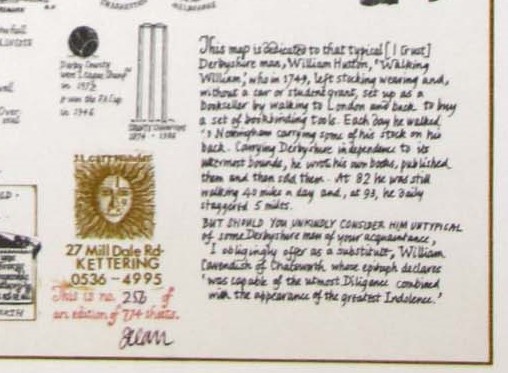 Derby County
won League Champ
in 1972
& won the FA Cup
in 1946
COUNTY CHAMPIONS
1874 - 1936
27 Mill Dale Rd-
KETTERING
0536 - 4995
This is no. of
an edition of 774 sheets.
This map is dedicated to that typical [I trust]
Derbyshire man, William Hutton, 'Walking
William', who in 1749, left stocking weaving and,
without a car or student grant, set up as a
bookseller by walking to London and back to buy
a set of bookbinding tools. Each day he walked
Nottingham carrying some of his stock on his
back. Carrying Derbyshire independence to its
uttermost bounds, he wrote his own books, published
them and then sold them. At 82 he was still
walking 40 miles a day and, at 93, he daily
staggered 5 miles.
BUT SHOULD YOU UNKINDLY CONSIDER HIM UNTYPICAL
of some Derbyshire men of your acquaintance,
I obligingly offer as a substitute, William
Cavendish of Chatsworth whose epitaph declares
'was capable of the utmost Diligence combined
with the appearance of the greatest Indolence.'